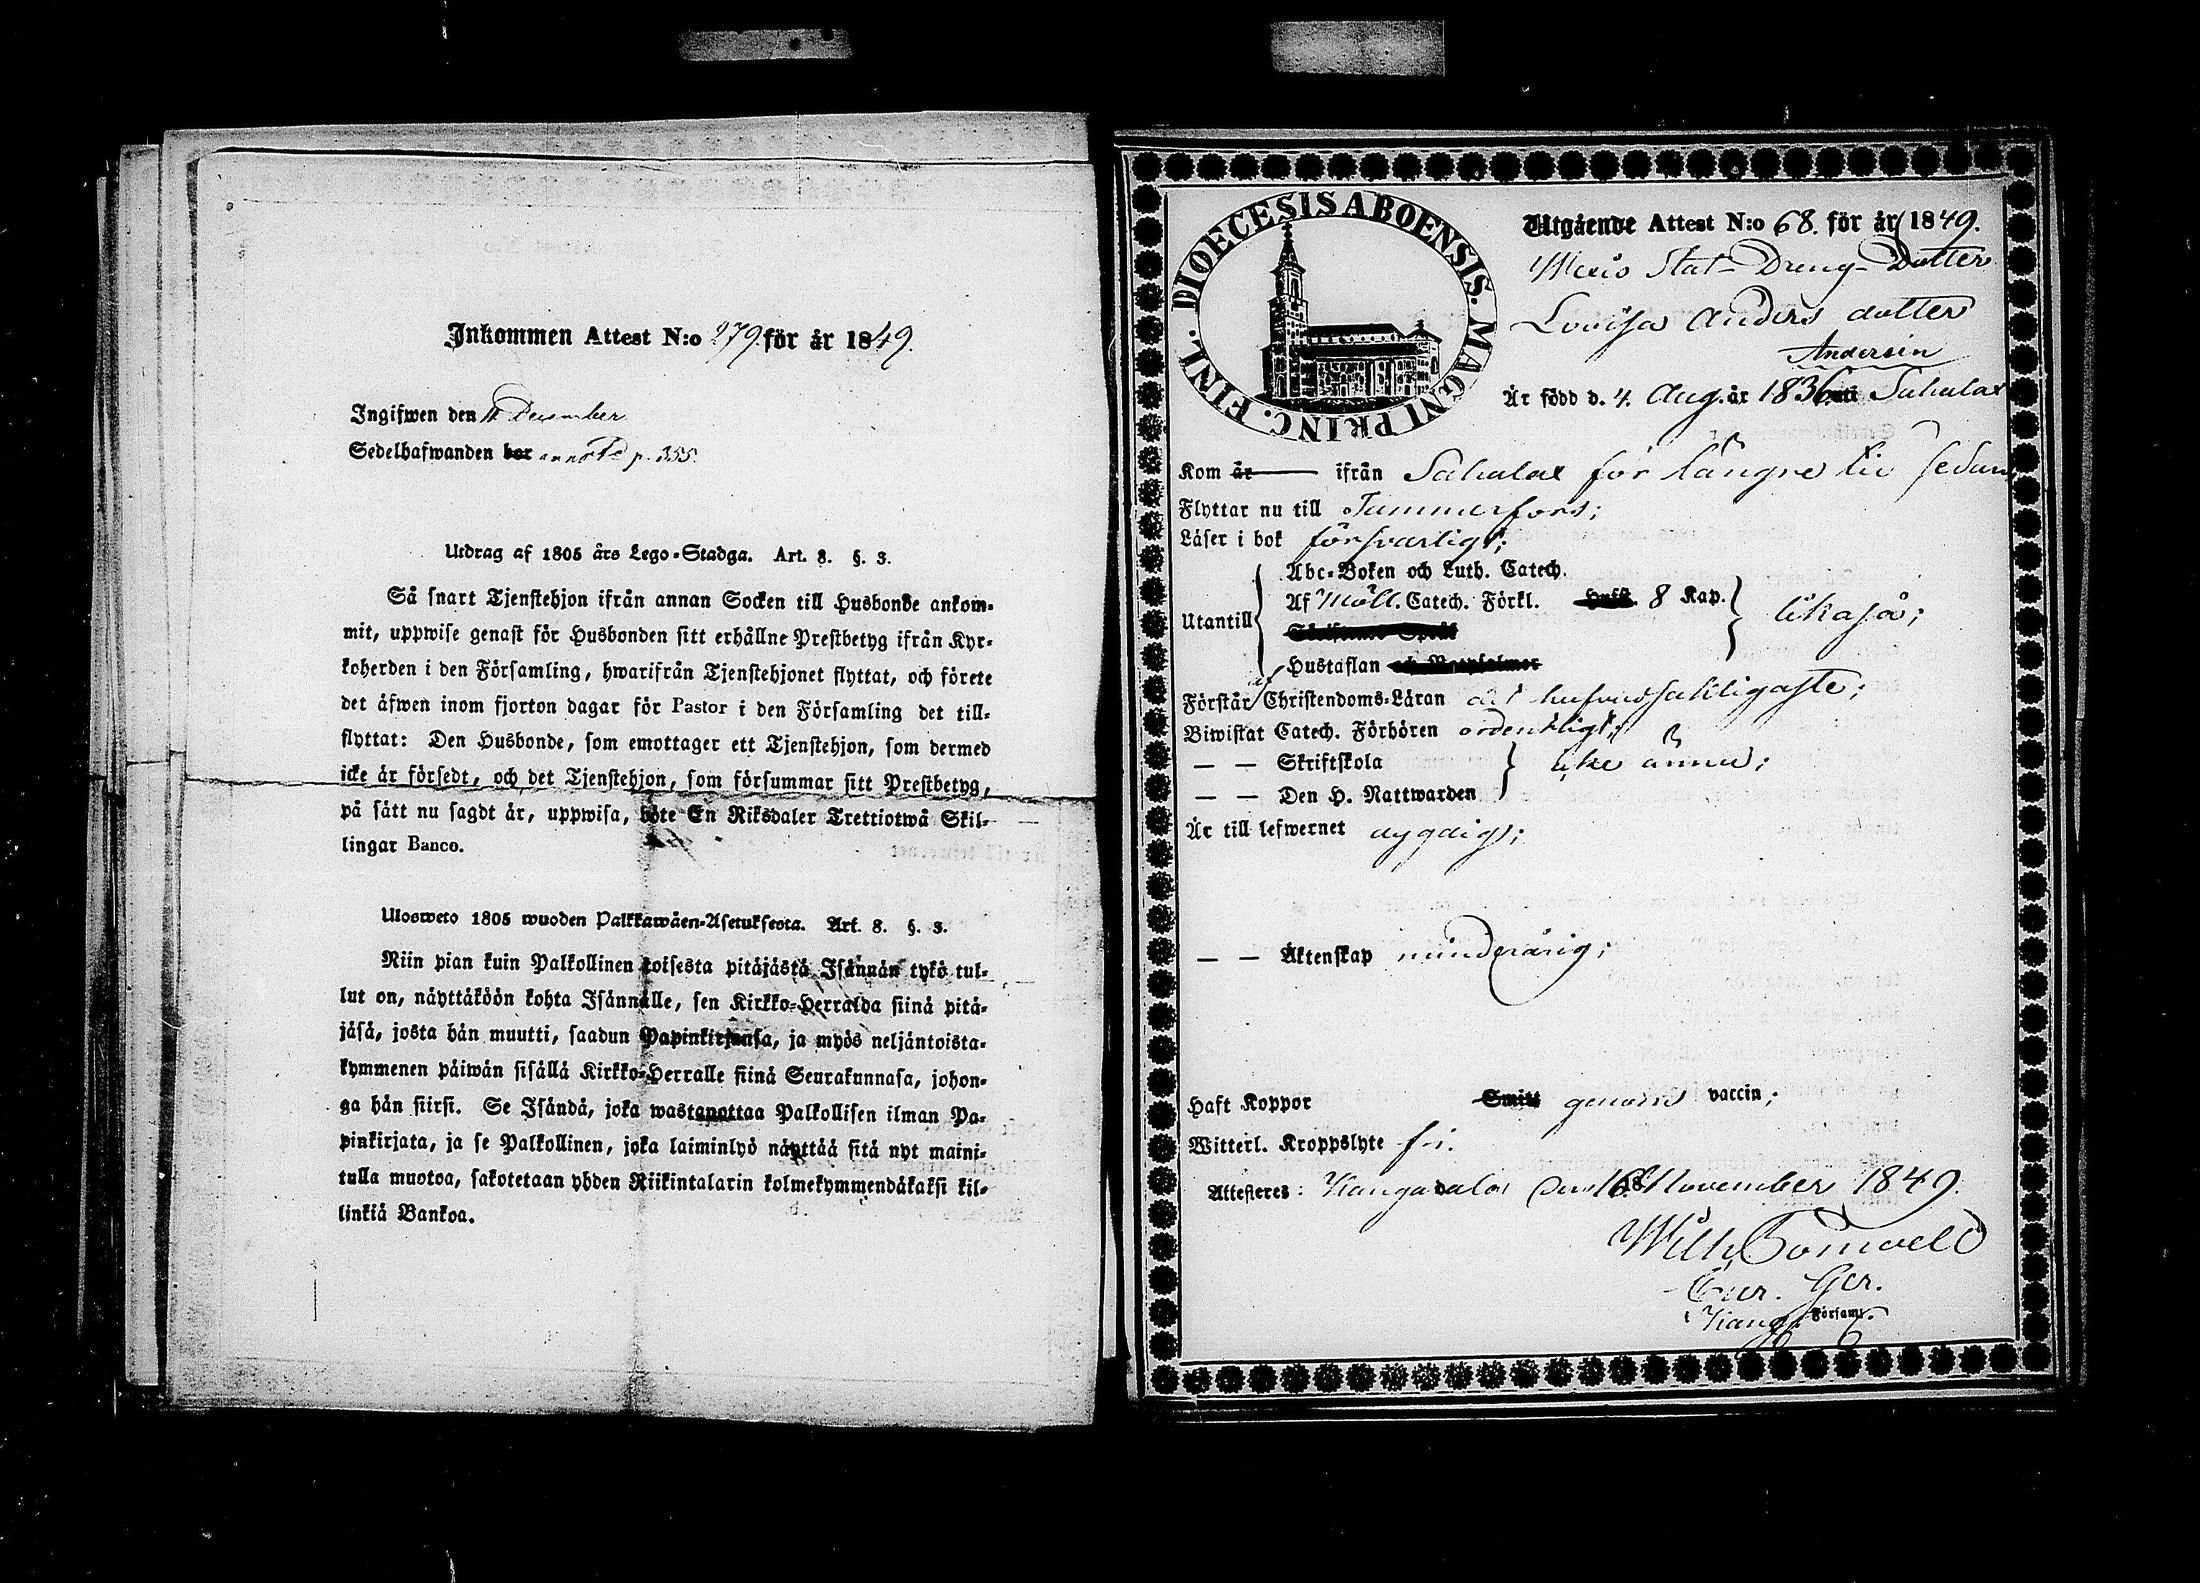 Inkommen Attest N:o 279. för år 1849.
Ingifwen den 11 December
Sedelhafwanden bor annot. p. 355.
Utdrag af 1805 års Lego-Stadga. Art. 8. §. 3.
Så snart Tjenstehjon ifrån annan Socken till Husbonde ankom-
mit, uppwise genast för Husbonden sitt erhållne Prestbetyg ifrån Kyr-
koherden i den Församling, hwarifrån Tjenstehjonet flyttat, och förete
det äfwen inom fjorton dagar för Pastor i den Församling det till-
flyttat: Den Husbonde, som emottager ett Tjenstehjon, som dermed
icke är försedt, och det Tjenstehjon, som försummar sitt Prestbetyg,
på sätt nu sagdt är, uppwisa, böte En Riksdaler Trettiotwå Skil-
lingar Banco.
Ulosweto 1805 wuoden Palkkawäen-Asetuksesta. Art. 8. §. 3.
Niin pian kuin Palkollinen toisesta pitäjästä Isännän tykö tul-
lut on, näyttäköön kohta Isännälle, sen Kirkko-Herralda siinä pitä-
jäsä, josta hän muutti, saadun Papinkirjansa, ja myös neljäntoista-
kymmenen päiwän sisällä Kirkko-Herralle siinä Seurakunnasa, johon-
ga hän siirsi. Se Isändä, joka wastanottaa Palkollisen ilman Pa-
pinkirjata, ja se Palkollinen, joka laiminlyö näyttää sitä nyt maini-
tulla muotoa, sakotetaan yhden Riikintalarin kolmekymmendäkaksi kil-
linkiä Bankoa.
DIOECESIS ABOENSIS. MAGNI PRINC. FINL.
Utgående Attest N:o 68. för år 1849.
Stat-Dreng-Dotter
Lovisa Anders dotter
Andersin
Är född d. 4. Aug. år 1836 uti Sahalax
Kom år ifrån Sahalax för längre tid sedan
Flyttar nu till Tammerfors;
Läser i bok försvarligt;
Abc-Boken och Luth. Catech.
Utantill Af Möll. Catech. Förkl. Hufst. 8 Kap. likaså;
Hustaflan och
Förstår af Christendoms-Läran det hufvudsakligaste;
Biwistat Catech. Förhören ordentligt;
— — Skriftskola icke ännu;
— — Den H. Nattwarden
Är till lefwernet dygdig;
— — Äktenskap minderårig;
Haft Koppor Smitt genom vaccin;
Witterl. Kroppslyte fri.
Attesteres: Kangasala den 16 November 1849.
Wilh.
Församl.